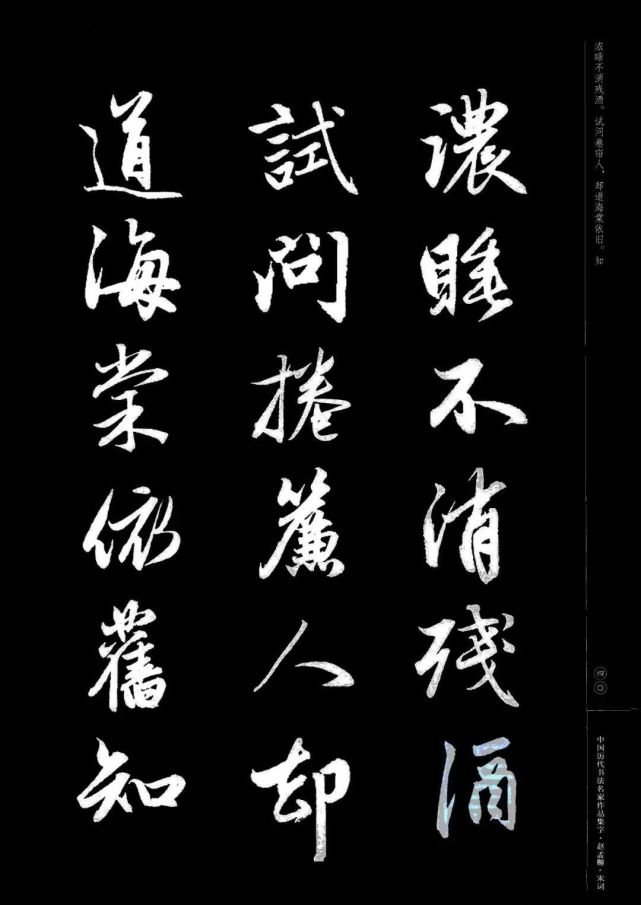 濃睡不消残酒
試問捲簾人却
道海棠依舊知
浓睡不消残酒。试问卷帘人，却道海棠依旧。知
四〇
中国历代书法名家作品集字·赵孟頫·宋词